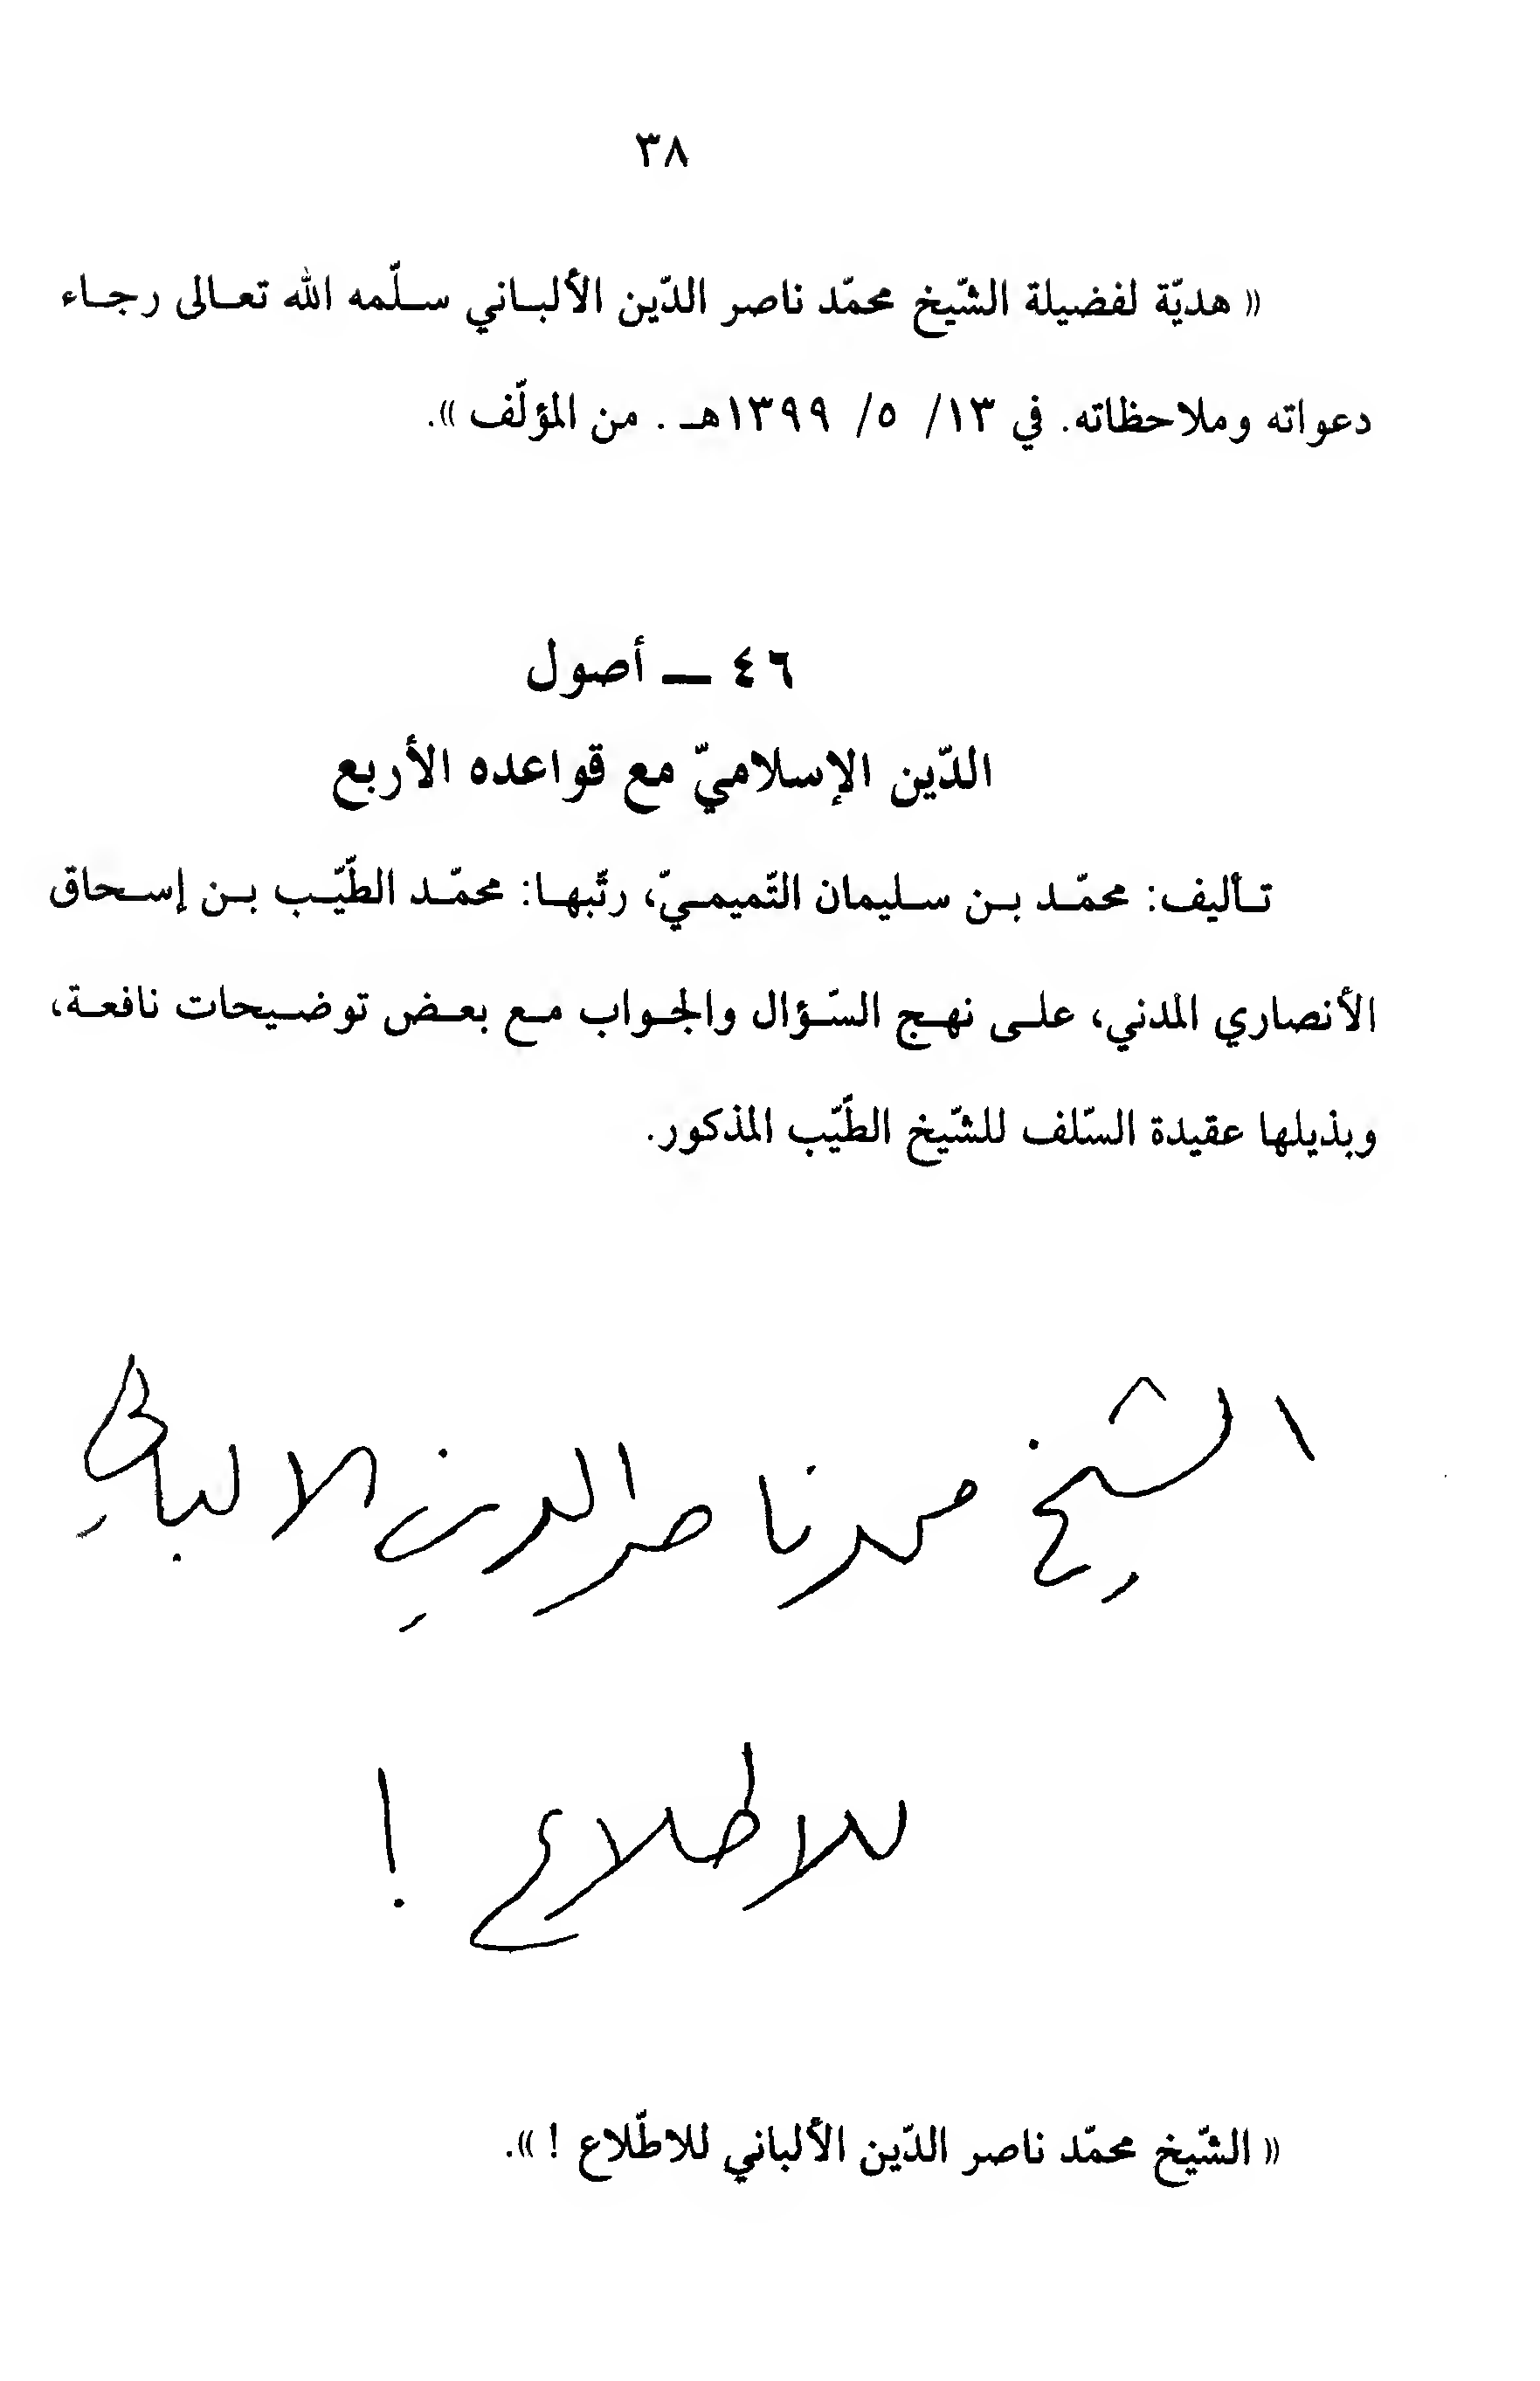 ٣٨
« هديّة لفضيلة الشّيخ محمّد ناصر الدّين الألبـاني سـلّمه الله تعـالى رجـاء
دعواته وملاحظاته. في ١٣/ ٥/ ١٣٩٩هـ . من المؤلّف ».
٤٦ — أصول
الدّين الإسلاميّ مع قواعده الأربع
تـأليف: محمّـد بـن سـليمان التّميمـيّ، رتّبهـا: محمّـد الطيّـب بـن إسـحاق
الأنصاري المدني، علـى نهـج السّـؤال والجـواب مـع بعـض توضـيحات نافعـة،
وبذيلها عقيدة السّلف للشّيخ الطّيّب المذكور.
الشيخ محمد ناصر الدين الالباني
للاطلاع !
« الشّيخ محمّد ناصر الدّين الألباني للاطّلاع ! ».